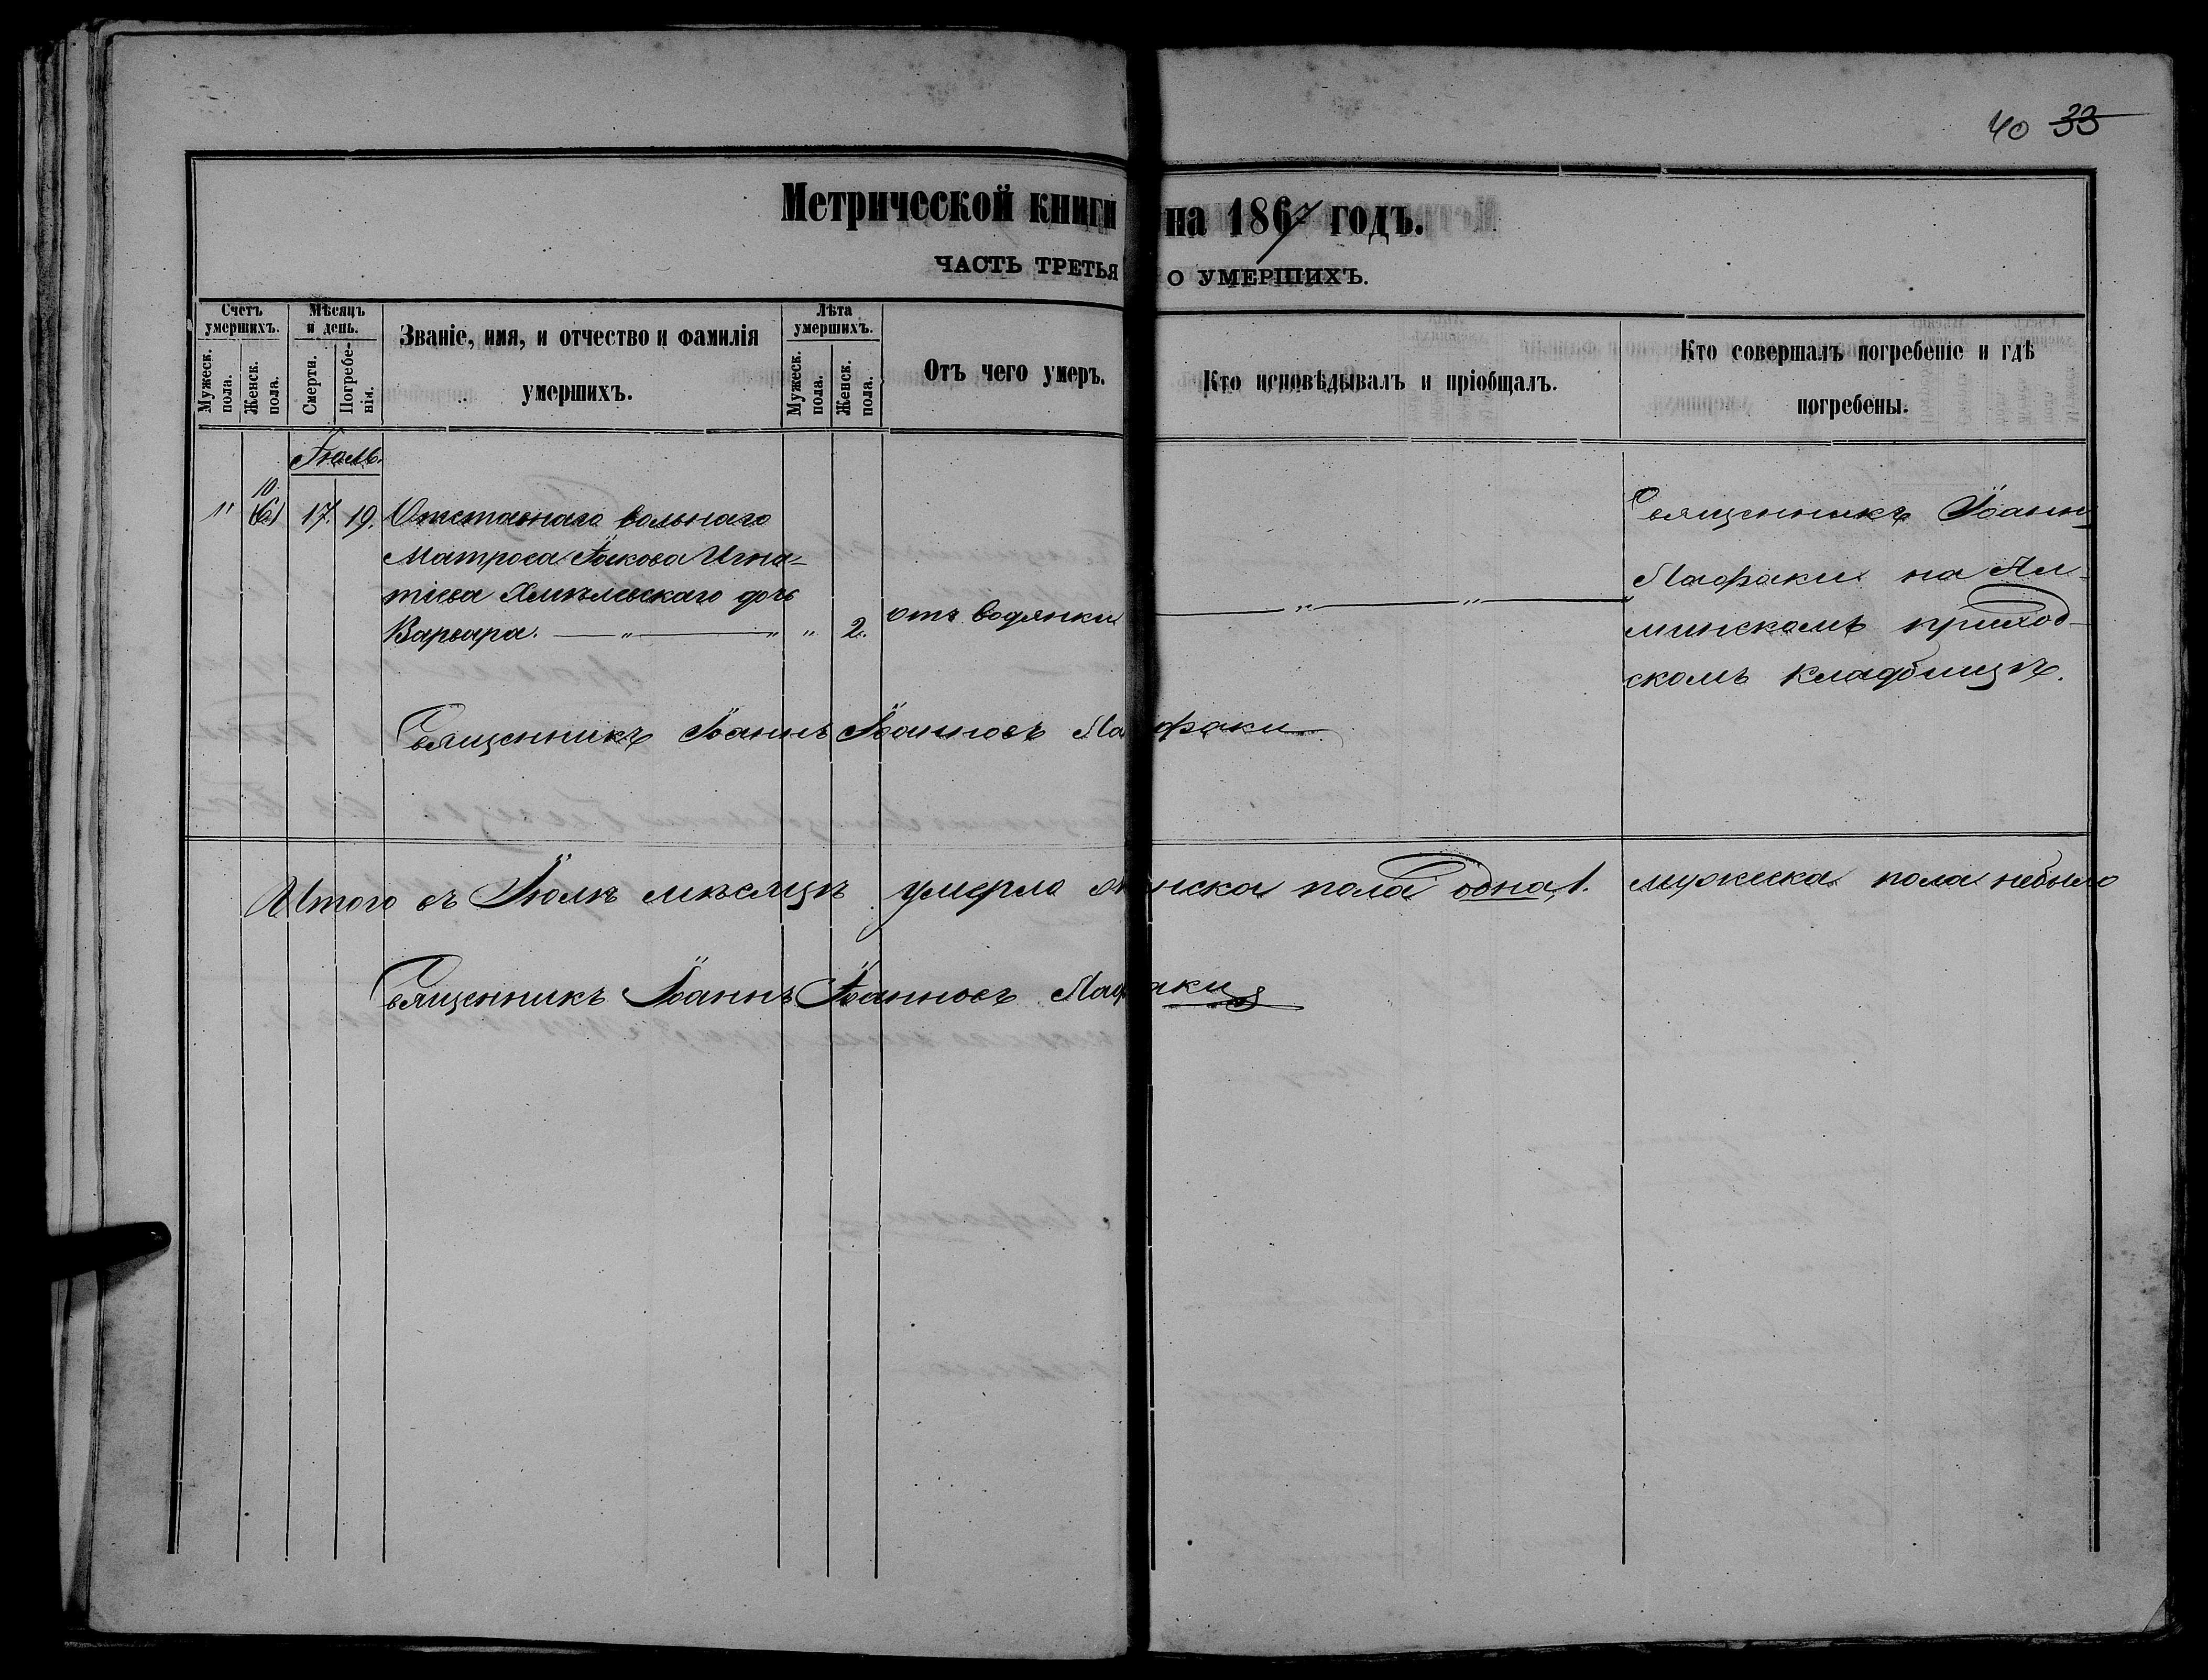 40 33
Метрической книги на 1867 годъ.
ЧАСТЬ ТРЕТЬЯ О УМЕРШИХЪ.
Счетъ умершихъ.
Мужеск. пола.
Женск. пола.
Мѣсяцъ и день.
Смерти.
Погребе-
нія.
Званіе, имя, и отчество и фамилія
умершихъ.
Лѣта умершихъ.
Мужеск. пола.
Женск. пола.
Отъ чего умеръ.
Кто исповѣдывалъ и пріобщалъ.
Кто совершалъ погребеніе и гдѣ
погребены.
Іюль.
10.
" (6) 17. 19. Отставнаго вольнаго
Матроса Іакова Игна-
тіева Хмѣлевскаго дочь
Варвара. — " — " " 2. отъ водянки — " — " —
Священникъ Іоаннъ
Лафаки на Ял-
минскомъ приход-
скомъ кладбищѣ.
Священникъ Іоаннъ Іоанновъ Лафаки
Итого въ Іюлѣ мѣсяцѣ умерла женска пола одна, 1. мужеска пола небыло
Священникъ Іоаннъ Іоанновъ Лафаки